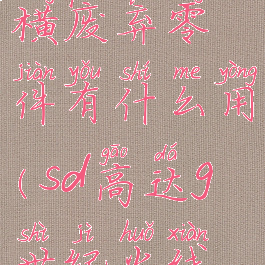 横废弃零
jiàn yǒu shí me yòng
件有什么用
gāo dá
(sd高达g
shì jì huǒ xiàn
世纪火线